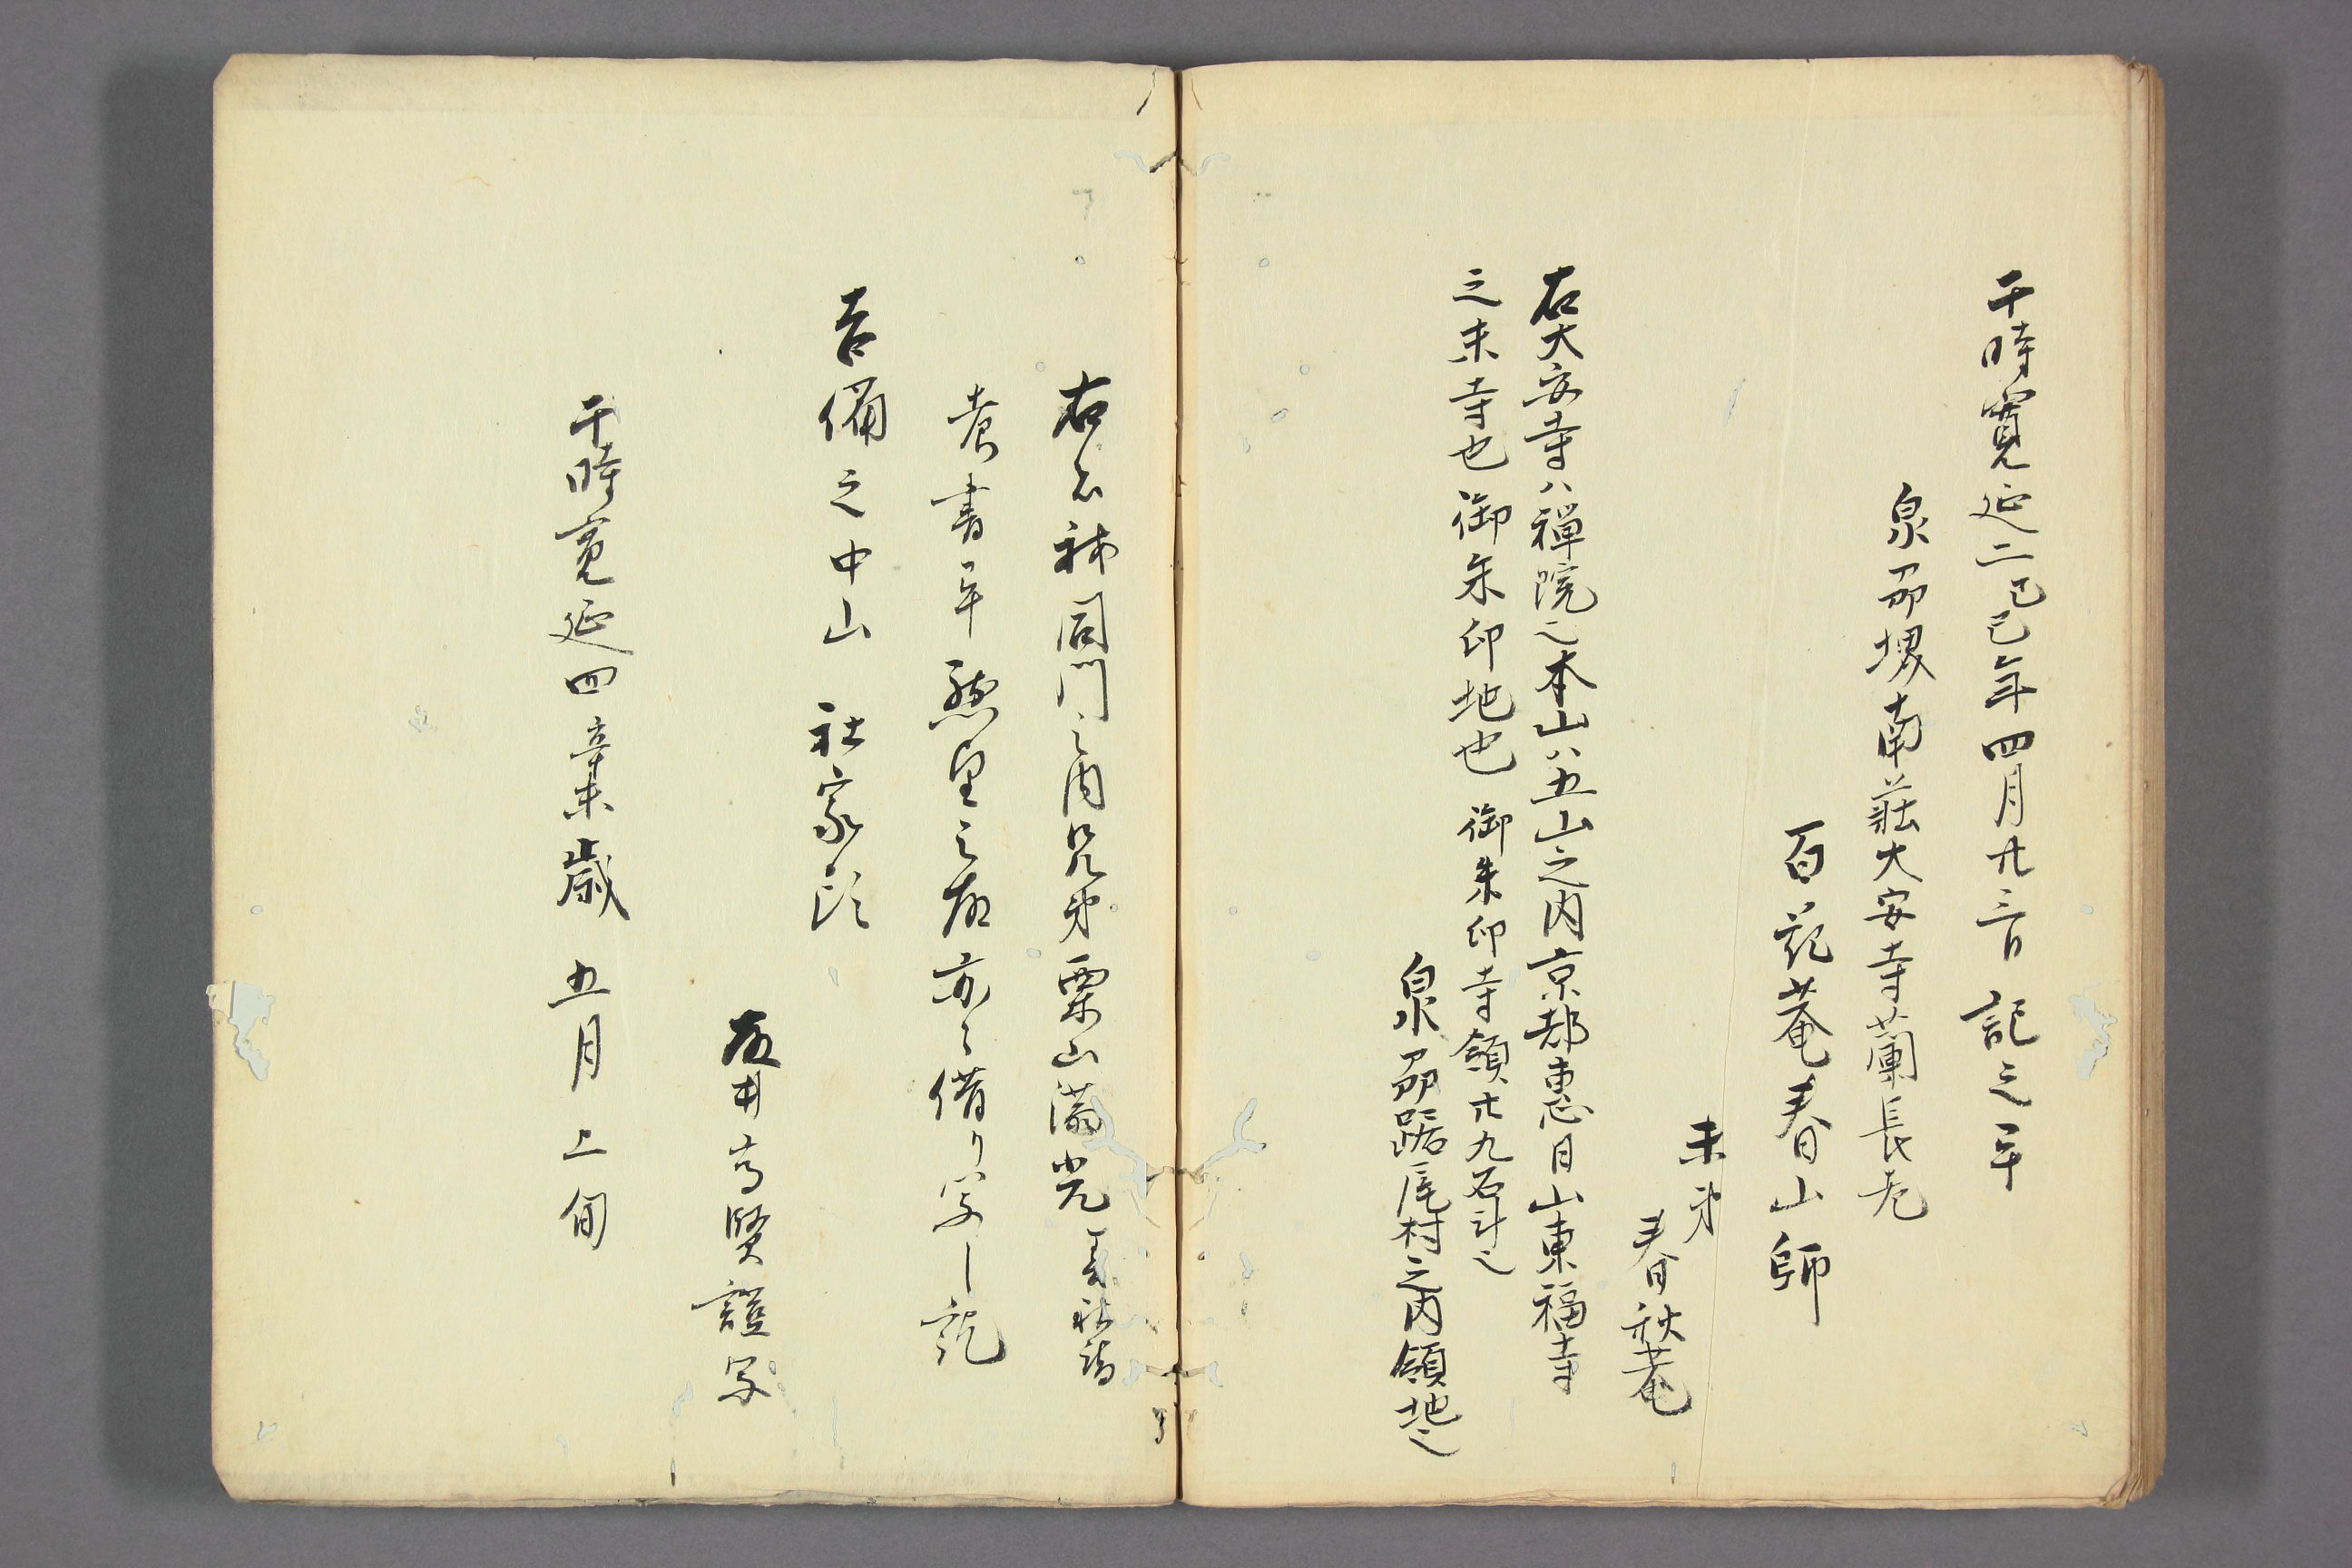 于時寛延二己巳年四月廿三日 記之畢
泉刕堺南荘大安寺蘭長老
百花菴春山師
末弟
春秋菴
右大安寺ハ禅院之本山ハ五山之内京都恵日山東福寺
之末寺也御朱印地也 御朱印寺領廿九石斗之
泉刕踞尾村之内領地之
右 神同門之内兄弟栗山満光
書畢懇望之故 借り写し訖
吉備之中山 社家
井高賢謹写
于時寛延四辛未歳 五月上旬